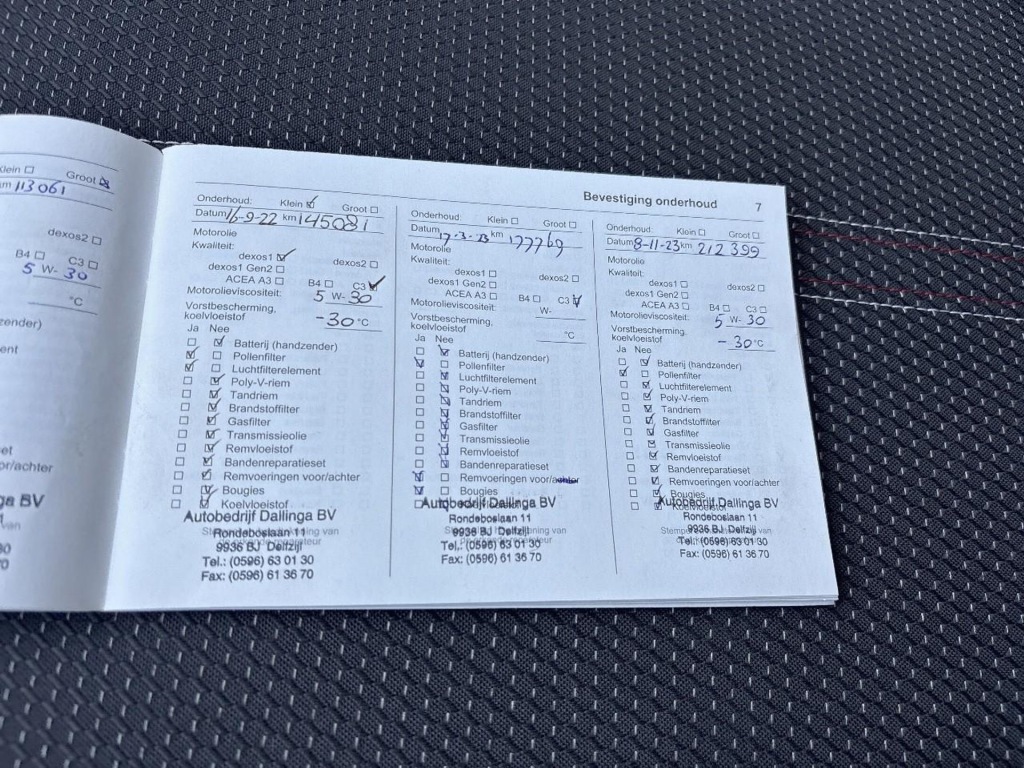 Klein Groot
km 113061
dexos2
B4 C3
5 W- 30
°C
voor/achter
ga BV
Bevestiging onderhoud 7
Onderhoud: Klein Groot
Datum 16-9-22 km 145081
Motorolie
Kwaliteit:
dexos1 dexos2
dexos1 Gen2
ACEA A3 B4 C3
Motorolieviscositeit: 5 W- 30
Vorstbescherming,
koelvloeistof -30 °C
Ja Nee
Batterij (handzender)
Pollenfilter
Luchtfilterelement
Poly-V-riem
Tandriem
Brandstoffilter
Gasfilter
Transmissieolie
Remvloeistof
Bandenreparatieset
Remvoeringen voor/achter
Bougies
Koelvloeistof
Autobedrijf Dallinga BV
Rondeboslaan 11
9936 BJ Delfzijl
Tel.: (0596) 63 01 30
Fax: (0596) 61 36 70
Onderhoud: Klein Groot
Datum 17-3-23 km 177769
Motorolie
Kwaliteit:
dexos1 dexos2
dexos1 Gen2
ACEA A3 B4 C3
Motorolieviscositeit: W-
Vorstbescherming,
koelvloeistof °C
Ja Nee
Batterij (handzender)
Pollenfilter
Luchtfilterelement
Poly-V-riem
Tandriem
Brandstoffilter
Gasfilter
Transmissieolie
Remvloeistof
Bandenreparatieset
Remvoeringen voor/achter
Bougies
Autobedrijf Dallinga BV
Rondeboslaan 11
9936 BJ Delfzijl
Tel.: (0596) 63 01 30
Fax: (0596) 61 36 70
Onderhoud: Klein Groot
Datum 8-11-23 km 212399
Motorolie
Kwaliteit:
dexos1 dexos2
dexos1 Gen2
ACEA A3 B4 C3
Motorolieviscositeit: 5 W- 30
Vorstbescherming,
koelvloeistof -30 °C
Ja Nee
Batterij (handzender)
Pollenfilter
Luchtfilterelement
Poly-V-riem
Tandriem
Brandstoffilter
Gasfilter
Transmissieolie
Remvloeistof
Bandenreparatieset
Remvoeringen voor/achter
Bougies
Koelvloeistof
Autobedrijf Dallinga BV
Rondeboslaan 11
9936 BJ Delfzijl
Tel.: (0596) 63 01 30
Fax: (0596) 61 36 70